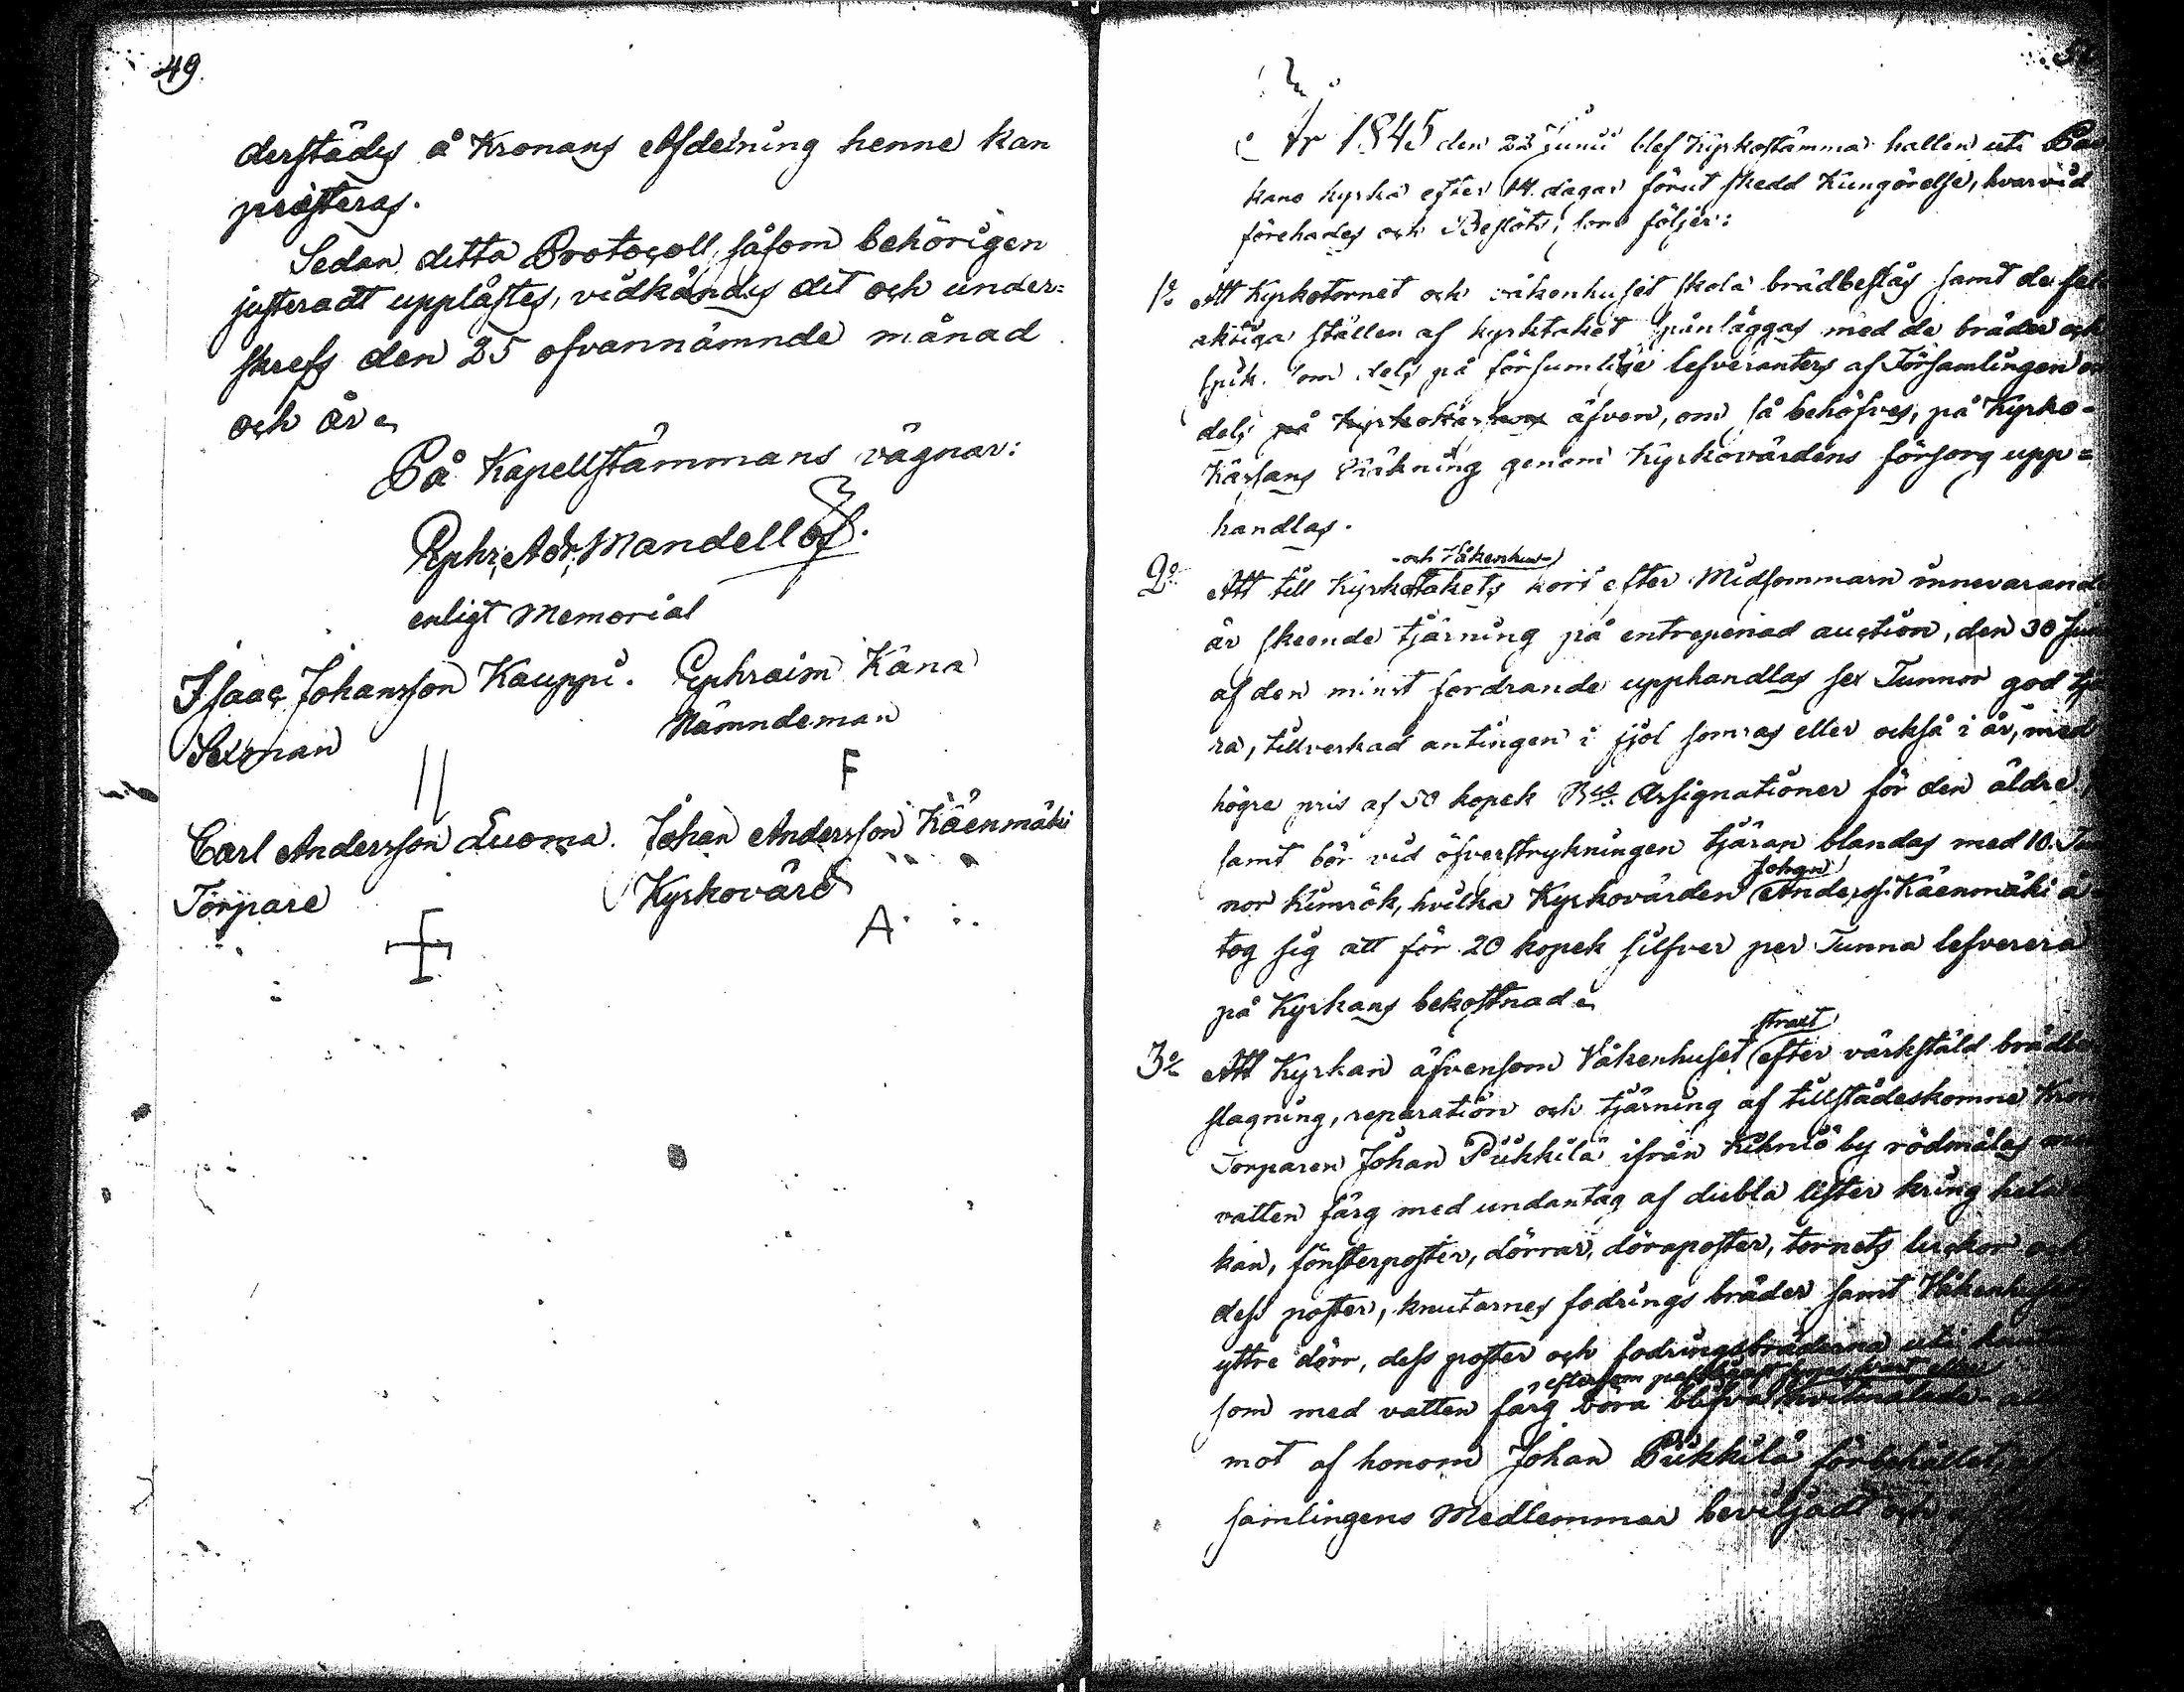 49.
derstädes å Kronans Afdelning henne kan
presteras.
Sedan detta Protocoll, såsom behörigen
justeradt upplästes, vidkändes det och under=
skrefs den 25 ofvannämnde månad
och år
På Kapellstämmans vägnar:
Ephr. Adr. Mandellöf.
enligt Memorial
Isaac Johansson Kauppi. Ephraim Käna
Sexman Nämndeman
F
Carl Andersson Luoma. Johan Andersson Käenmäki
Torpare Kyrkovärd
A
År 1845 den 22 Junii blef Kyrkostämma hallen uti
kano kyrka efter 14. dagar förut skedd Kungörelse, hvarvid
förehades och Beslöts, som följer:
1o Att Kyrkotornet och våkenhuset skola brädbeslås samt de
aktiga ställen af kyrktaket pånläggas med de bräder och
spik. som dels på försumlige lefveranters af Församlingen
dels på Kyrkokassans äfven, om så behöfves, på Kyrko-
Kassans Räkning genom Kyrkovärdens försorg upp=
handlas.
-och Våkenhus-
2o Att till Kyrkotakets kort efter Midsommarn innevarande
år skeende tjärning på entrepenad auction, den 30 Jun
af den minst fordrande upphandlas sex Tunnor god
ra, tillverkad antingen i fjol somras eller också i år, med
högre pris af 50 kopek Bco. Assignationer för den äldre
samt bör vid öfverstrykningen tjäran blandas med 10.
Johan
nor kimrök, hvilka Kyrkovärden Anderss. Käenmäki å
tog sig att för 20 kopek silfver per Tunna lefverera
på Kyrkans bekostnad
straxt
3o Att Kyrkan äfvensom Våkenhuset efter värkstäld brädbe
slagning, reparation och tjärning af tillstädeskomne Kron
Torparen Johan Pükkilä ifrån Kihniö by rödmåles
vatten färg med undantag af dubla lister kring hela
kan, fönsterposter, dörrar, döraposter, tornets luckor och
dess poster, knutarnes fodrings bräder samt Våkenhusets
yttre dörr, dess poster och fodringsbräderna
eftersom
som med vatten färg böra blifva
mot af honom Johan Pükkilä förbehållet,
samlingens Medlemmar beviljadt och